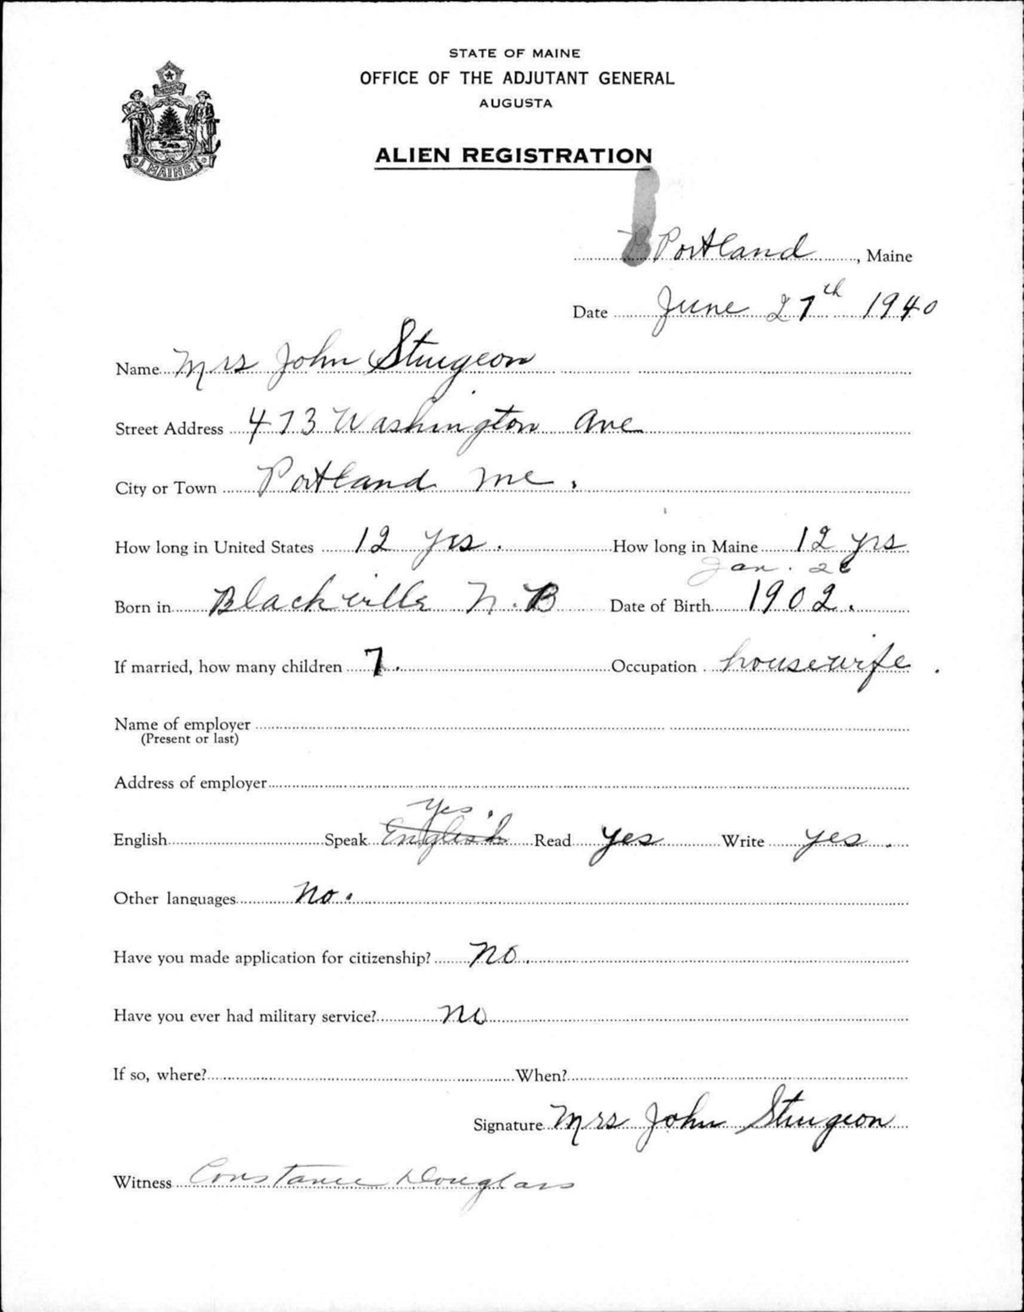 STATE OF MAINE
OFFICE OF THE ADJUTANT GENERAL
AUGUSTA
ALIEN REGISTRATION
MAINE
Portland, Maine
Date June 27th 1940
Name Mrs John Sturgeon
Street Address 473 Washington Ave
City or Town Portland Me.
How long in United States 12 yrs. How long in Maine 12 yrs
Jan. 26
Born in Blackville N.B Date of Birth 1902.
If married, how many children 7. Occupation housewife.
Name of employer
(Present or last)
Address of employer
Yes.
English Speak English Read yes Write yes.
Other languages No.
Have you made application for citizenship? No.
Have you ever had military service? No
If so, where? When?
Signature Mrs John Sturgeon
Witness Constance Douglass